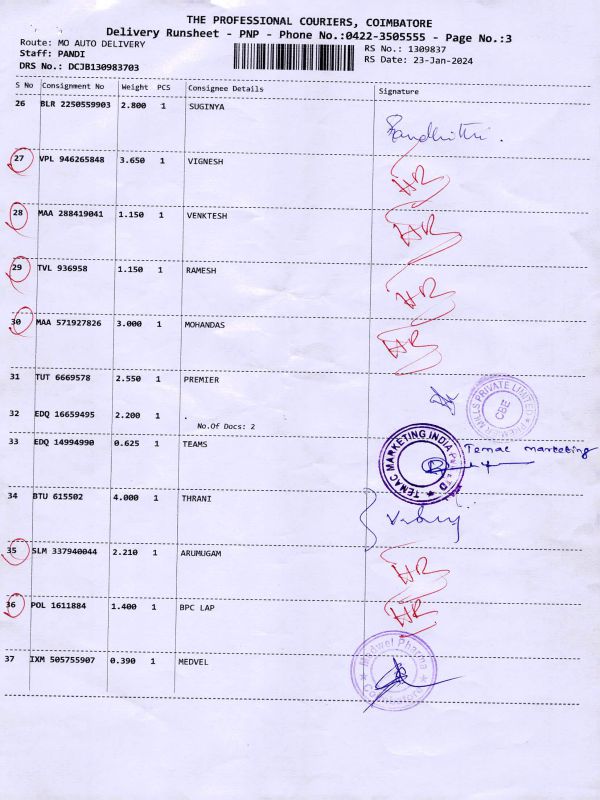 THE PROFESSIONAL COURIERS, COIMBATORE
Delivery Runsheet - PNP - Phone No.:0422-3505555 - Page No.:3
Route: MO AUTO DELIVERY RS No.: 1309837
Staff: PANDI RS Date: 23-Jan-2024
DRS No.: DCJB130983703
S No Consignment No Weight PCS Consignee Details Signature
26 BLR 2250559903 2.800 1 SUGINYA
27 VPL 946265848 3.650 1 VIGNESH HR
28 MAA 288419041 1.150 1 VENKTESH HR
29 TVL 936958 1.150 1 RAMESH HR
30 MAA 571927826 3.000 1 MOHANDAS HR
31 TUT 6669578 2.550 1 PREMIER
MILLS PRIVATE LIMITED
CBE
32 EDQ 16659495 2.200 1 .
No.Of Docs: 2
33 EDQ 14994990 0.625 1 TEAMS
TEMAC MARKETING INDIA PVT LTD
Temac marketing
34 BTU 615502 4.000 1 THRANI
35 SLM 337940044 2.210 1 ARUMUGAM HR
36 POL 1611884 1.400 1 BPC LAP HR
37 IXM 505755907 0.390 1 MEDVEL
Medwel Pharma